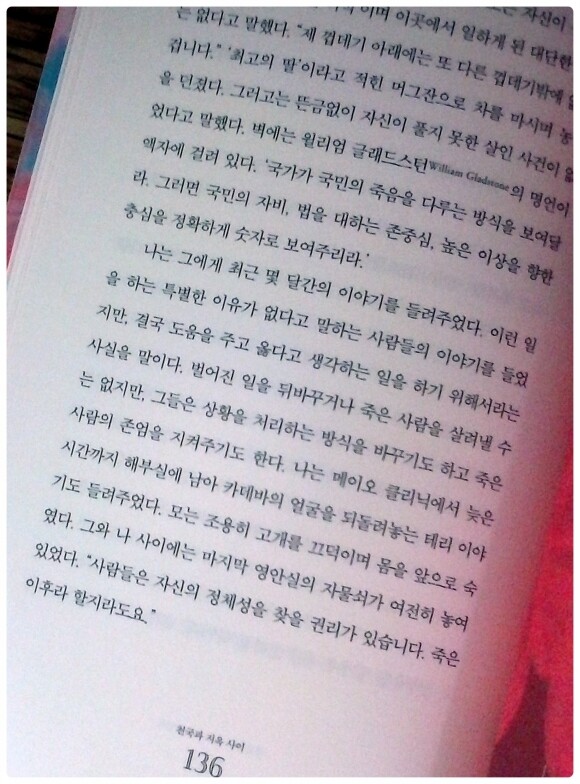 이며 이곳에서 일하게 된 대단한
는 없다고 말했다. “제 껍데기 아래에는 또 다른 껍데기밖에
겁니다.” ‘최고의 딸’이라고 적힌 머그잔으로 차를 마시며
을 던졌다. 그러고는 뜬금없이 자신이 풀지 못한 살인 사건이
었다고 말했다. 벽에는 윌리엄 글래드스턴William Gladstone의 명언이
액자에 걸려 있다. ‘국가가 국민의 죽음을 다루는 방식을 보여달
라. 그러면 국민의 자비, 법을 대하는 존중심, 높은 이상을 향한
충심을 정확하게 숫자로 보여주리라.’
나는 그에게 최근 몇 달간의 이야기를 들려주었다. 이런 일
을 하는 특별한 이유가 없다고 말하는 사람들의 이야기를 들었
지만, 결국 도움을 주고 옳다고 생각하는 일을 하기 위해서라는
사실을 말이다. 벌어진 일을 뒤바꾸거나 죽은 사람을 살려낼 수
는 없지만, 그들은 상황을 처리하는 방식을 바꾸기도 하고 죽은
사람의 존엄을 지켜주기도 한다. 나는 메이오 클리닉에서 늦은
시간까지 해부실에 남아 카데바의 얼굴을 되돌려놓는 테리 이야
기도 들려주었다. 모는 조용히 고개를 끄덕이며 몸을 앞으로 숙
였다. 그와 나 사이에는 마지막 영안실의 자물쇠가 여전히 놓여
있었다. “사람들은 자신의 정체성을 찾을 권리가 있습니다. 죽은
이후라 할지라도요.”
천국과 지옥 사이
136